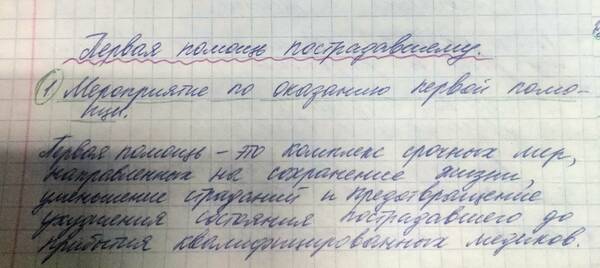 Первая помощь пострадавшему.
1) Мероприятие по оказанию первой помо-
щи.
Первая помощь – это комплекс срочных мер,
направленных на сохранение жизни,
уменьшение страданий и предотвращение
ухудшения состояния пострадавшего до
прибытия квалифицированных медиков.